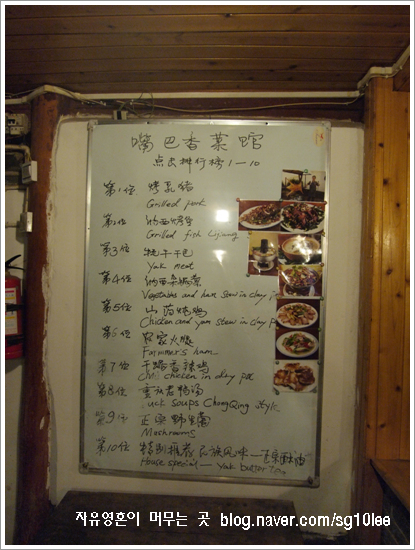 嘴巴香菜馆
点击排行榜1—10
第1位 烤乳猪
Grilled pork
第2位 纳西烤鱼
Grilled fish Lijiang
第3位 牦牛干巴
Yak meat
第4位 纳西
Vegetables and ham stew in clay
第5位 山药炖鸡
Chicken and yam stew in clay
第6位 农家火腿
Farmmer's ham
第7位 干锅香辣鸡
chicken in clay pot
第8位 老鸭汤
uck soups ChongQing style
第9位 正宗野生菌
Mushrooms
第10位 特别推荐 民族风味—酥油
House special — Yak butter Tea
자유영혼이 머무는 곳 blog.naver.com/sg10lee